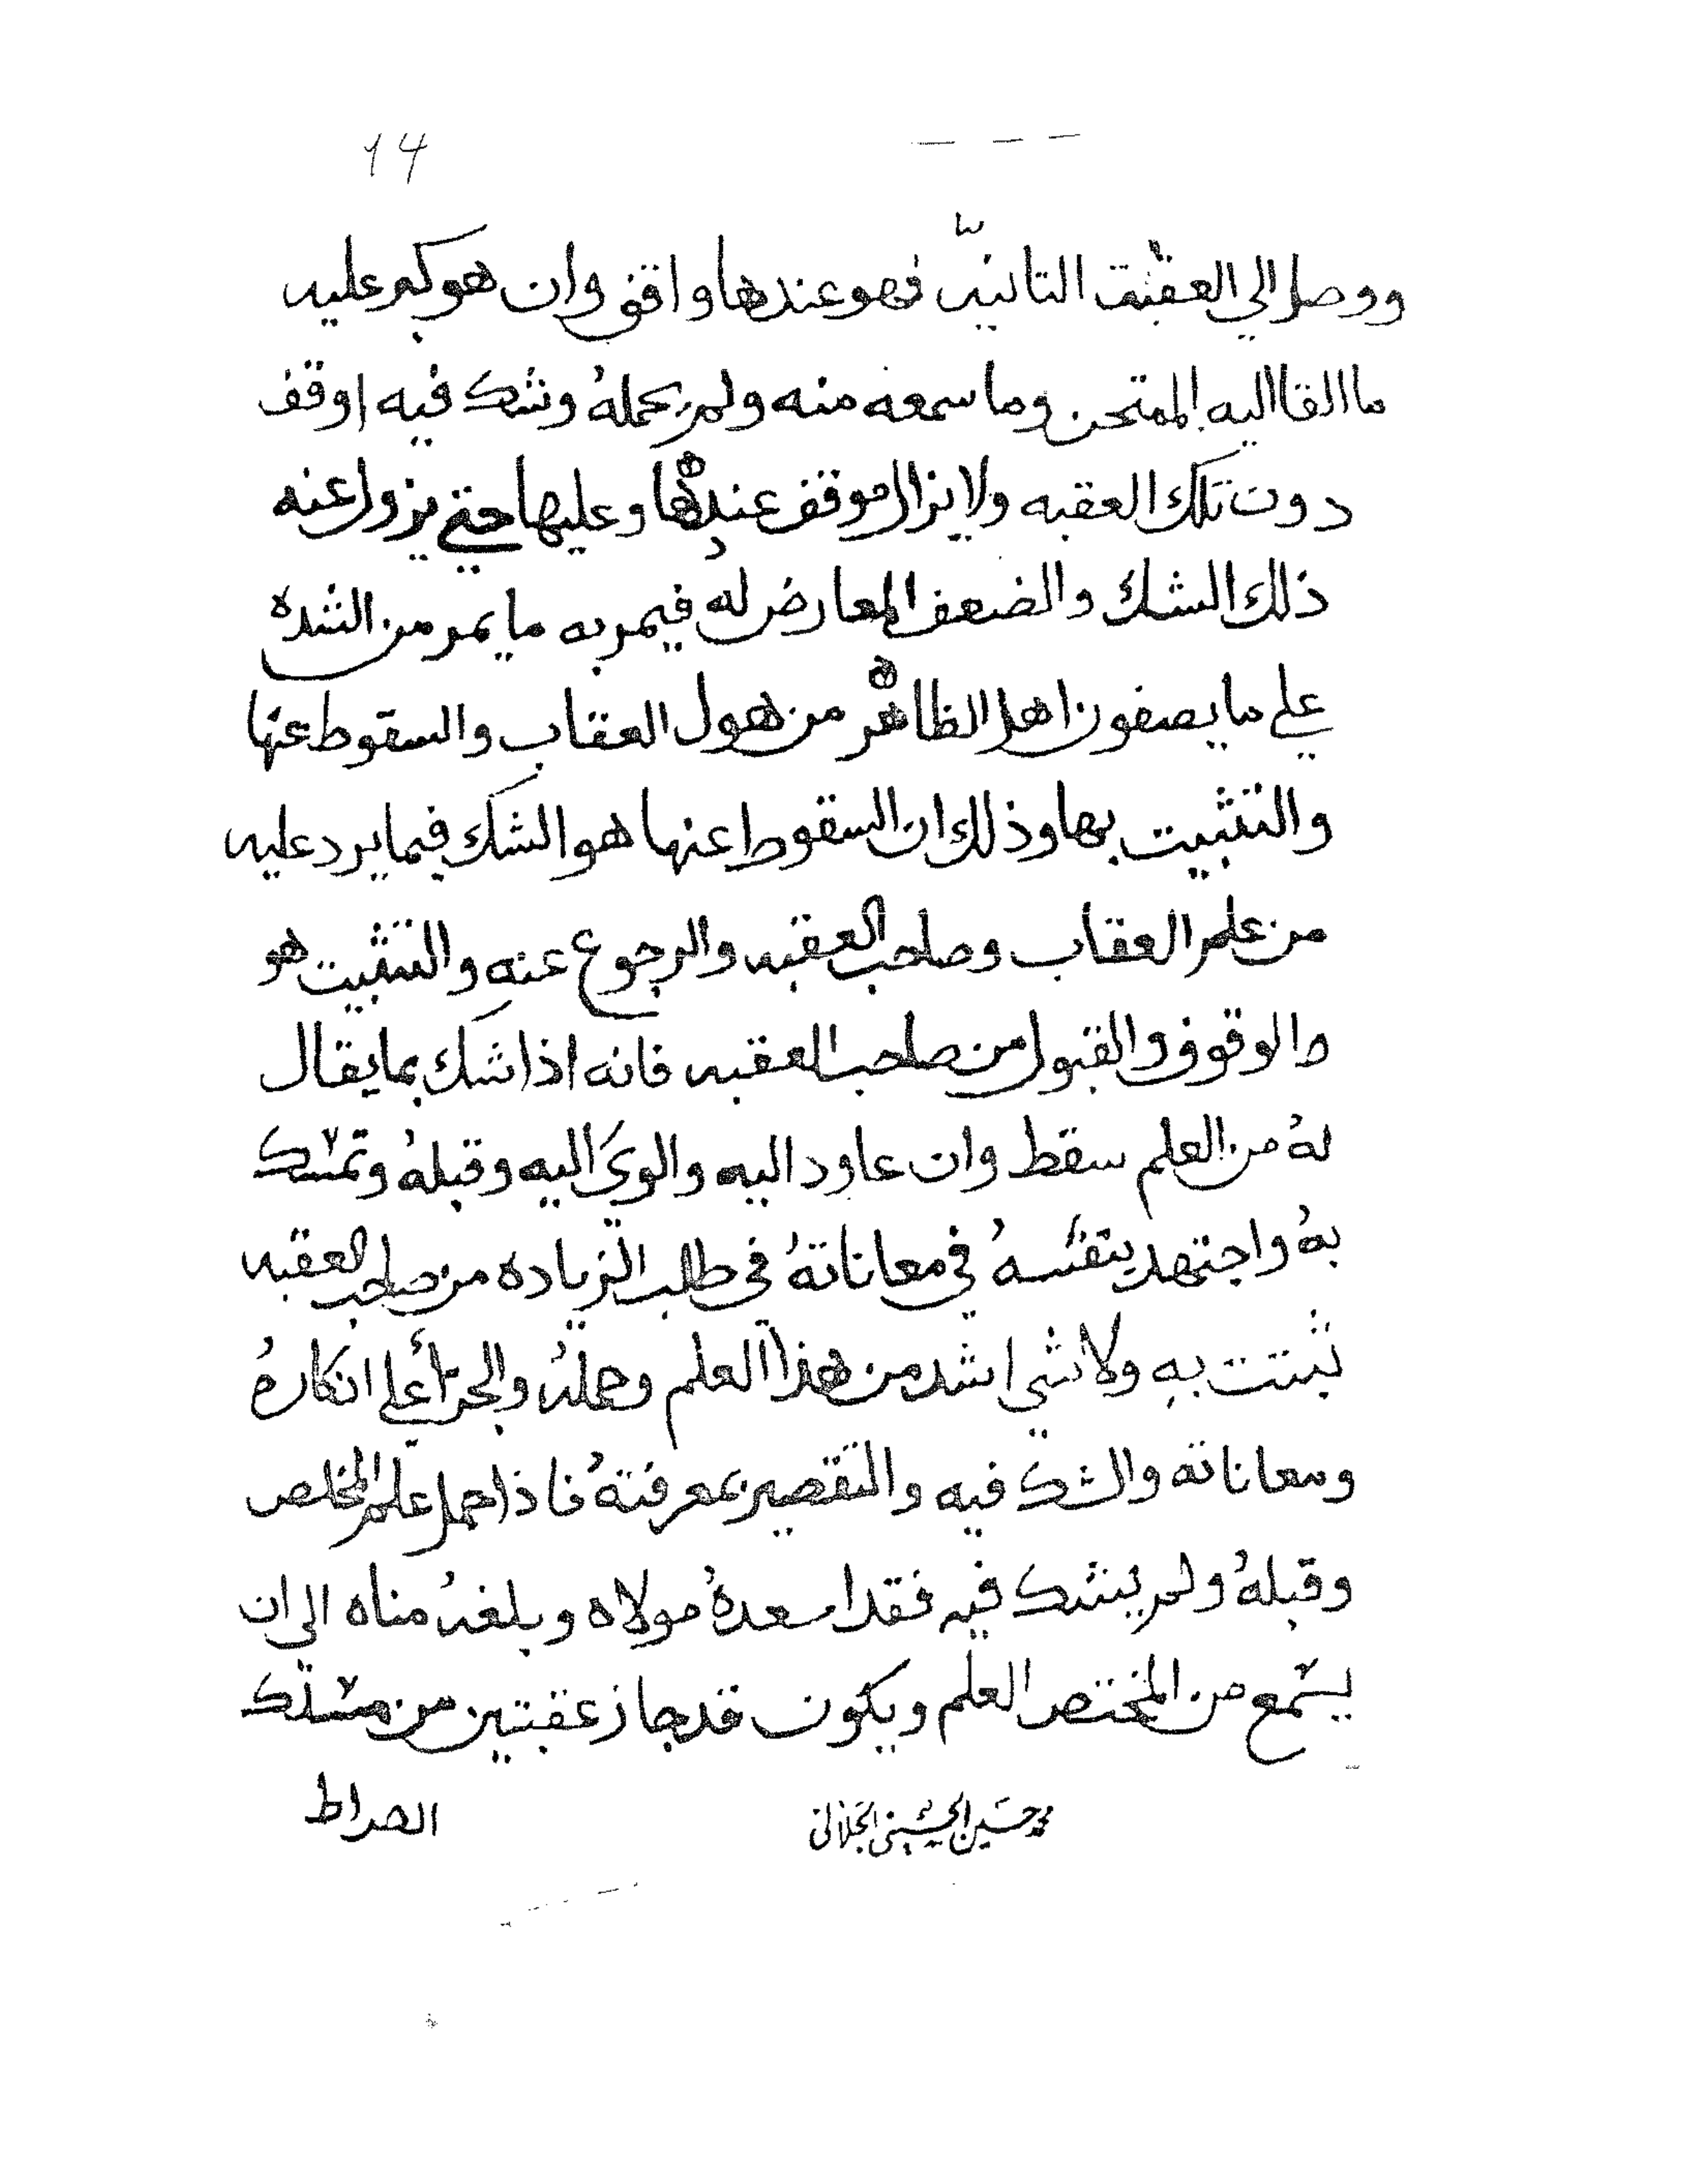 14
ووصل الي العقبت الثانيه فهو عندها واقف وان هو كبر عليه
ما القا اليه الممتحن وما سمعه منه ولم يحمله وشك فيه اوقف
دون تلك العقبه ولا يزال موقف عندها وعليها حتي يزول عنه
ذلك الشك والضعف المعارض له فيمر به ما يمر من الشده
علي ما يصفون اهل الظاهر من هول العقاب والسقوط عنها
والتثبيت بها وذلك ان السقوط عنها هو الشك فيما يرد عليه
من علم العقاب وصاحب العقبه والرجوع عنه والتثبيت هو
الوقوف والقبول من صاحب العقبه فانه اذا شك بما يقال
لهُ من العلم سقط وان عاود اليه والوي اليه وقبلهُ وتمسك
بهُ واجتهد بنفسهُ في معاناتهُ في طلب الزياده من صاحب العقبه
ثبتت به ولا شي اشد من هذا العلم وحملهُ والجرأ علي انكارهُ
ومعاناته والشك فيه والتقصير بمعرفتهُ فاذا حمل علم المخلص
وقبلهُ ولم يشك فيه فقد اسعدهُ مولاه وبلغهُ مناه الي ان
يسمع من المختص العلم ويكون قد جاز عقبتين من مسلك
الصراط
محمد حسين الحسيني الجلالي